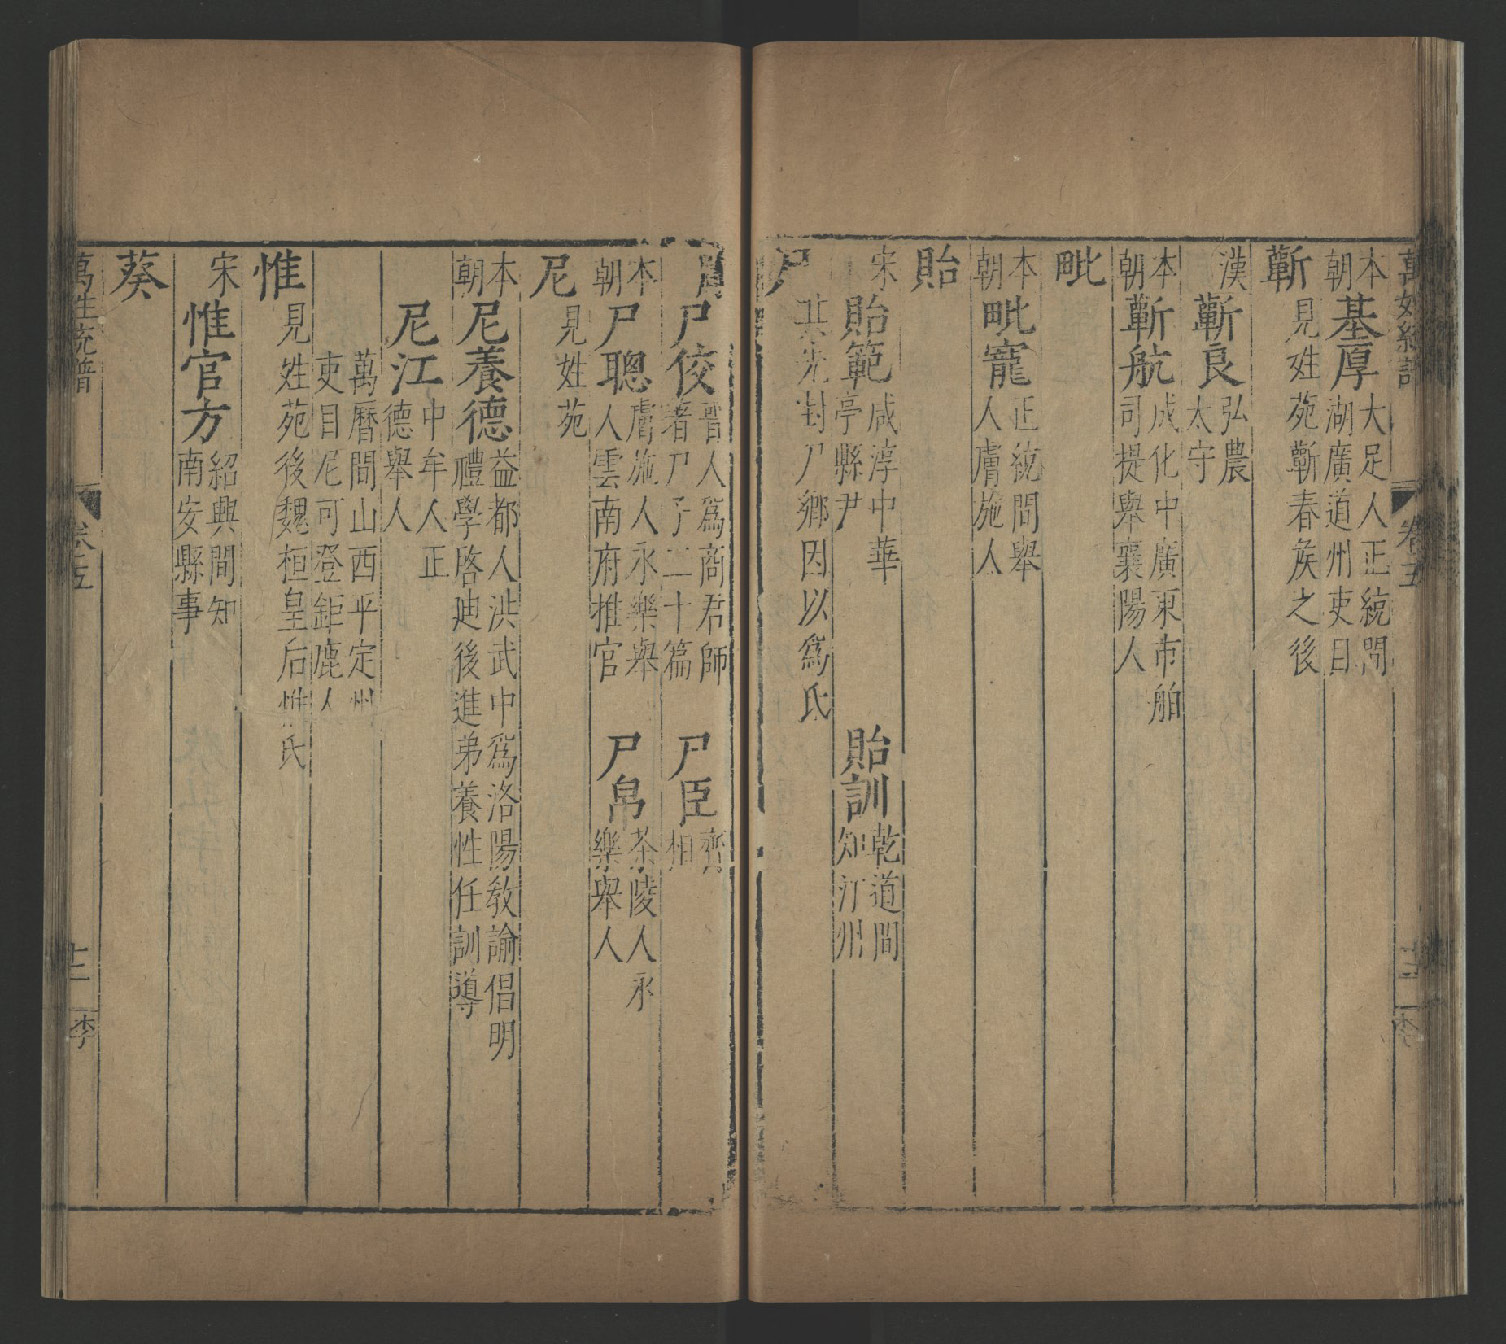 萬姓統譜 卷五 十二 李
本朝 基厚 大足人正統間湖廣道州吏目
蘄 見姓苑蘄春侯之後
漢 蘄良 弘農太守
本朝 蘄航 成化中廣東市舶司提舉襄陽人
毗
本朝 毗寵 正統間舉人膚施人
貽
宋 貽範 咸淳中華亭縣尹 貽訓 乾道間知汀州
尸 其先封尸鄉因以爲氏
尸佼 晉人爲商君師著尸子二十篇 尸臣 齊相
本朝 尸聰 膚施人永樂舉人雲南府推官 尸帛 茶陵人永樂舉人
尼 見姓苑
本朝 尼養德 益都人洪武中爲洛陽教諭倡明禮學啓迪後進弟養性任訓導
尼江 中牟人正德舉人
萬曆間山西平定州吏目尼可登鉅鹿人
惟 見姓苑後魏桓皇后惟氏
宋 惟官方 紹興間知南安縣事
葵
萬姓統譜 卷五 十二 李